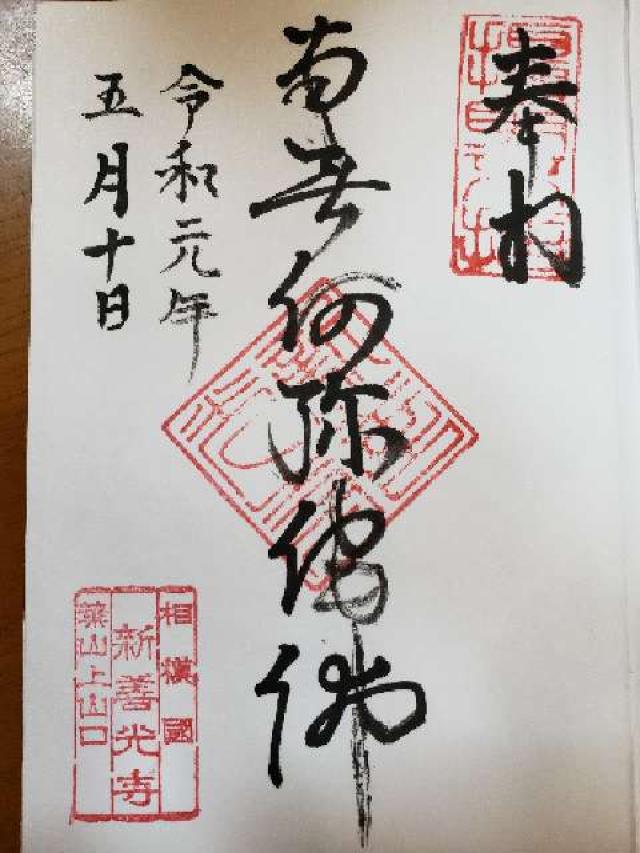 奉拝
南無阿弥陀佛
令和元年
五月十日
相模國
新善光寺
葉山上山口